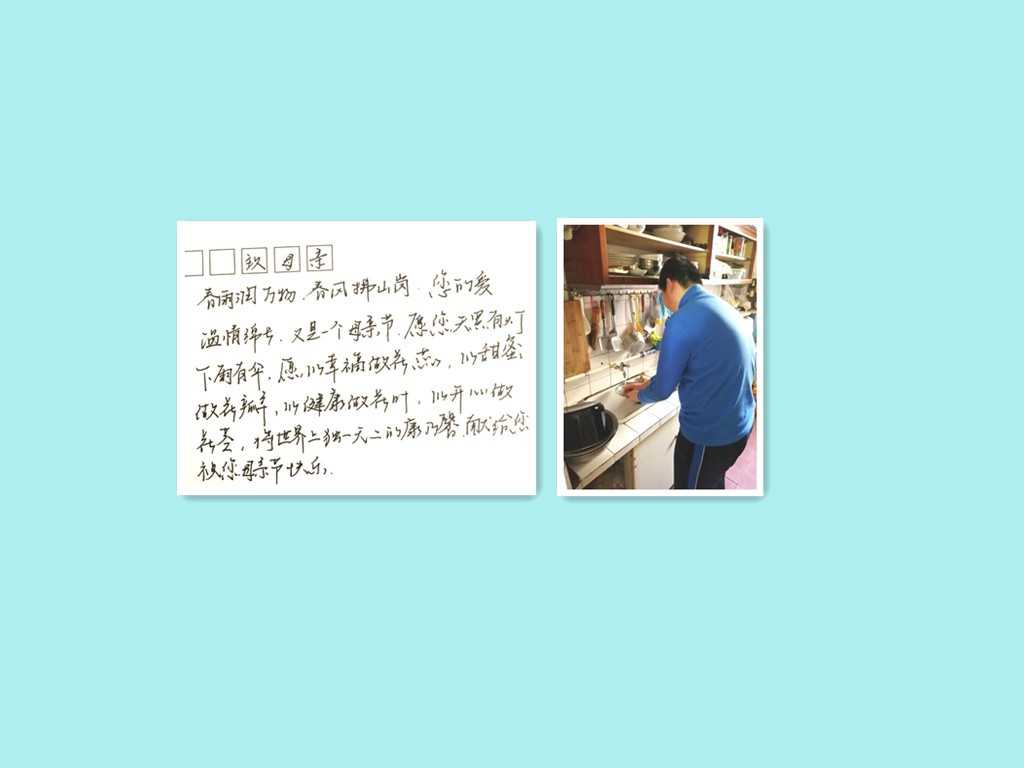 致母亲
春雨润万物.春风拂山岗.您的爱
温情绵长.又是一个母亲节.愿您天黑有灯
下雨有伞.愿以幸福做花蕊,以甜蜜
做花瓣,以健康做花叶,以开心做
花茎,将世界上独一无二的康乃馨献给您
祝您母亲节快乐.